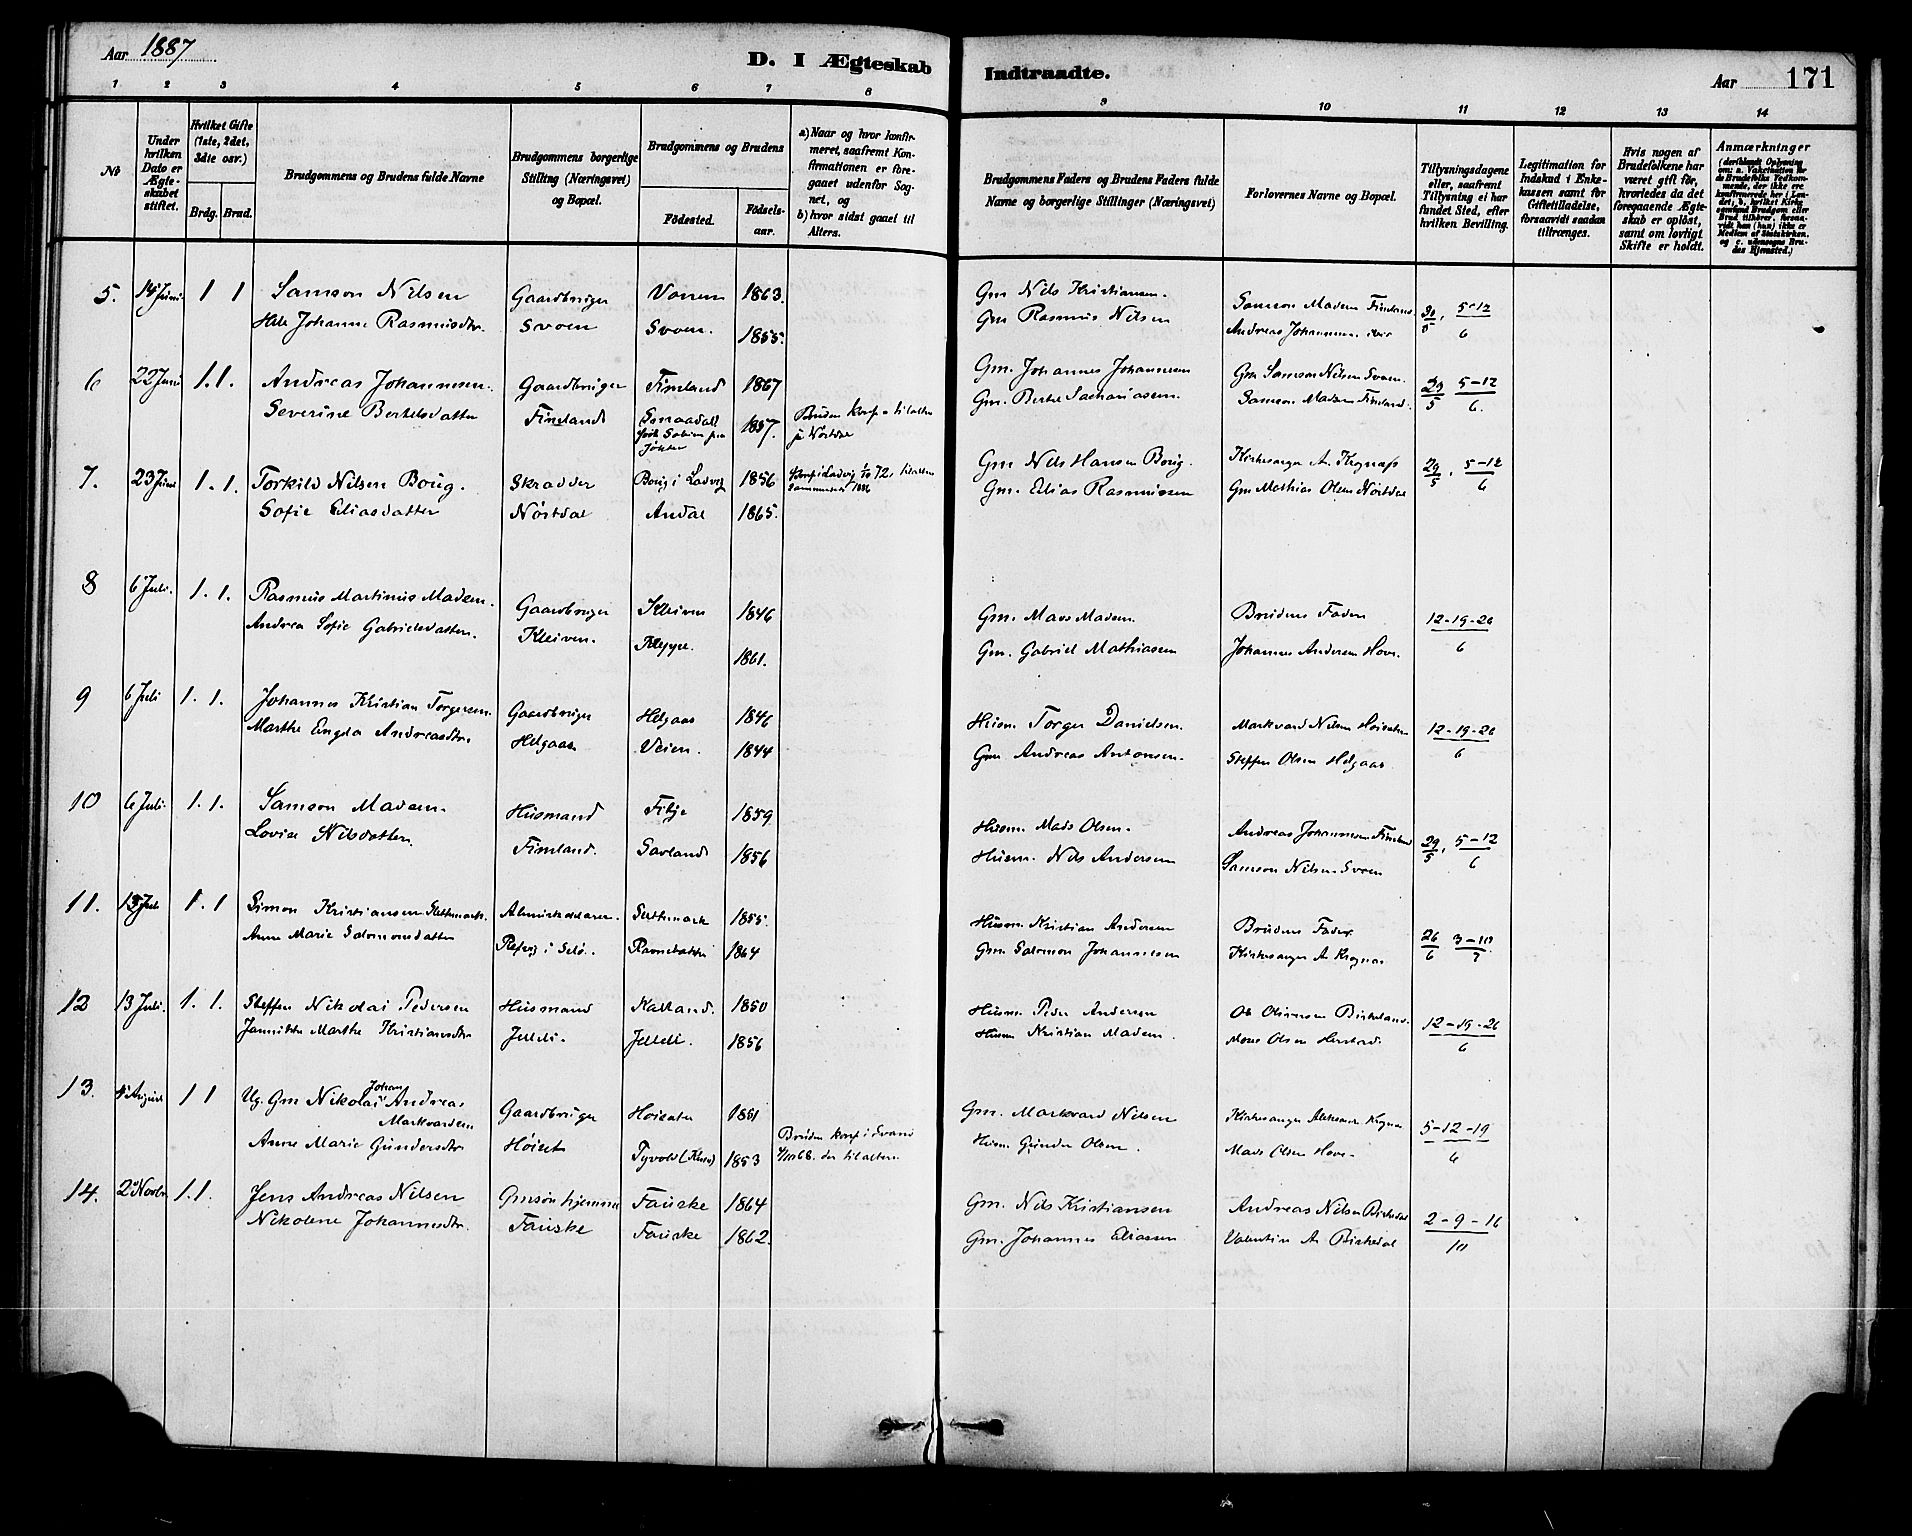 Aar 1887
D. I Ægteskab Indtraadte.
Aar 171
1 2 3 4 5 6 7 8 9 10 11 12 13 14
No
Under hvilken Dato er Ægteskabet stiftet.
Hvilket Gifte (1ste, 2det, 3die osv.)
Brdg. Brud.
Brudgommens og Brudens fulde Navne
Brudgommens borgerlige Stilling (Næringsvei) og Bopæl.
Brudgommens og Brudens
Fødested. Fødselsaar.
a) Naar og hvor konfirmeret, saafremt Konfirmationen er foregaaet udenfor Sognet, og
b) hvor sidst gaaet til Alters.
Brudgommens Faders og Brudens Faders fulde Navne og borgerlige Stillinger (Næringsvei)
Forlovernes Navne og Bopæl.
Tillysningsdagene eller, saafremt Tillysning ei har fundet Sted, efter hvilken Bevilling.
Legitimation for Indskud i Enkekassen samt for Giftetilladelse, forsaavidt saadan tiltrænges.
Hvis nogen af Brudefolkene har været gift før, hvorledes da det foregaaende Ægteskab er opløst, samt om lovligt Skifte er holdt.
Anmærkninger
5. 14 Juni. 1 1 Samson Nilsen Gaardbruger Vonen 1863. Gm Nils Kristiansen. Samson Madsen Fimland 29/5, 5-12/6
Johanne Rasmusdtr. Svoen Svoen. 1855. Gm Rasmus Nilsen Andreas Johannesen
6 22 Juni 1. 1. Andreas Johannesen. Gaardbruger Fimland 1867 Gm. Johannes Johannesen Gm Samson Nilsen Svoen. 29/5 5-12/6.
Severine Bertelsdatter Fimland Smaadal 1857. Bruden Konf. tilalters Nøstdal Gm. Samson Madsen Fimland.
7. 23 Juni 1. 1. Torkild Nilsen Borig. Skradder Borig i Ladvig 1856 Konf i Ladvig 1/10 72, tilalters sammesteds 1886 Gm Nils Hansen Borig. Kirkesanger A. Krognæs 29/5, 5-12/6
Sofie Eliasdatter Nøstdal Andal 1865. Gm. Elias Rasmussen Gm Mathias Olsen Nøstdal
8 6 Juli. 1. 1. Rasmus Martinus Madsen. Gaardbruger Kleiven 1846 Gm. Mads Madsen. Brudens Fader 12-19-26/6
Andrea Sofie Gabrielsdatter. Kleiven. Kleppe. 1861. Gm. Gabriel Mathiassen Johannes Andersen Hove.
9 6 Juli 1. 1. Johannes Kristian Torgersen. Gaardbruger Helgaas 1846 Husm. Torger Danielsen. Markvard Nilsen Høieset 12-19-26/6
Marthe Engda Andreasdtr. Helgaas Veien. 1844 Gm. Andreas Antonsen. Steffen Olsen Helgaas
10 6 Juli 1. 1. Samson Madsen. Husmand Fitje 1859 Husm. Mads Olsen. Andreas Johannesen Fimland 29/5, 5-12/6
Lovise Nilsdatter. Fimland. Savland 1856 Husm. Nils Andersen Samson Nilsen Svoen
11. 13 Juli 1. 1 Simon Kristiansen Slettemark. 1855. Husm. Kristian Andersen Brudens Fader. 26/6 3-10/7
Anne Marie Salomonsdatter 1864 Gm. Salomon Johannesen Kirkesanger A Krognæs
12 13 Juli. 1. 1. Steffen Nikolai Pedersen Husmand Kalland. 1850 Husm. Peder Andersen Ole Oliversen Birkeland. 12-19-26/6
Jannikke Marthe Kristiansdtr 1856 Husm Kristian Madsen. Mons Olsen
13. August 1 1 Ug. Gm Nikolai Johan Andreas Markvardsen Gaardbruger Høieset 1861 Gm. Markvard Nilsen Kirkesanger 5-12-19/6
Anne Marie Gundersdtr Høiset Tyvold 1853 Bruden konf i der tilalters. Husm. Gunder Olsen. Mads Olsen Hove.
14. 2 Novbr. 1. 1. Jens Andreas Nilsen Gmsøn hjemme Fauske 1864 Gm. Nils Kristiansen Andreas Nilsen Birkedal 2-9-16/10
Nikoline Johannesdtr. Fauske Fauske 1862. Gm. Johannes Eliassen Valentin A. Birkedal